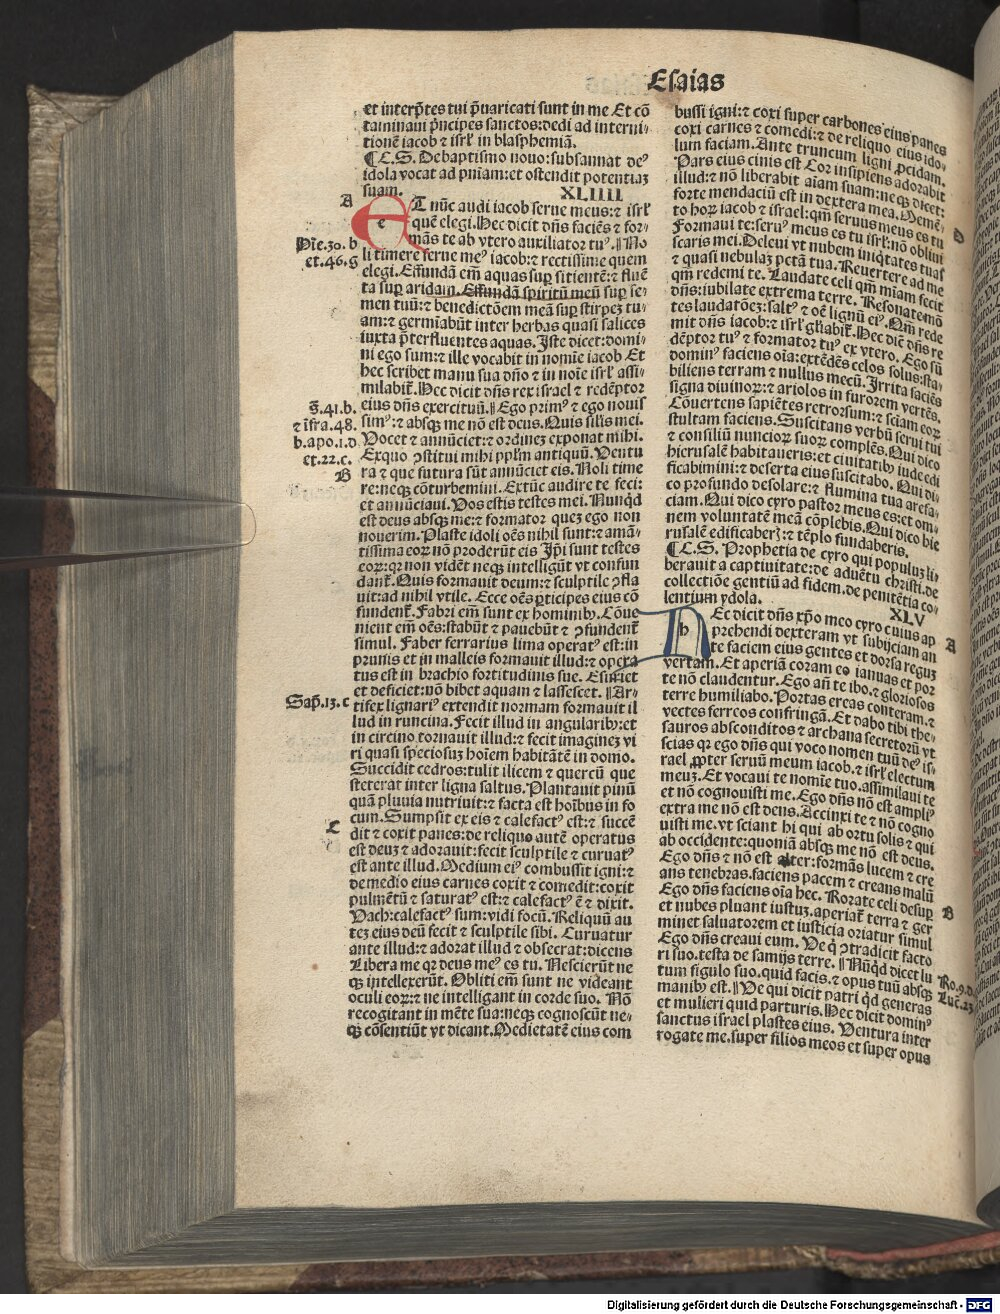 Esaias
et interp̄tes tui p̄uaricati sunt in me Et cō
taminaui p̄ncipes sanctos:dedi ad interni⸗
tionē iacob ⁊ isrl̄ in blasphemiā.
¶ C.S. De baptismo nouo:subsannat deꝰ
idola vocat ad pn̄iam:et ostendit potentiaꝫ
suam. XLIIII
A
Et nūc audi iacob serue meus:⁊ isrl̄
e
quē elegi.Hec dicit dn̄s faciēs ⁊ for⸗
Hie.30.b
mās te ab vtero auxiliator tuꝰ.‖No
et.46.g
li timere serue meꝰ iacob:⁊ rectissime quem
elegi.Effundā em̄ aquas suꝑ sitientē:⁊ fluē
ta suꝑ aridam.Effundā spiritū meū suꝑ se⸗
men tuū:⁊ benedictōem meā suꝑ stirpeꝫ tu⸗
am:⁊ germīabūt inter herbas quasi salices
iuxta p̄terfluentes aquas.Iste dicet:domi⸗
ni ego sum:⁊ ille vocabit in nomīe iacob Et
hec scribet manu sua dn̄o ⁊ in noīe isrl̄ assi⸗
milabit᷑.Hec dicit dn̄s rex israel ⁊ redēptor
s̄.41.b.
eius dn̄s exercituū.‖Ego primꝰ ⁊ ego nouis
⁊ īfra.48.
simꝰ:⁊ absqꝫ me nō est deus.Quis sil̄is mei.
b.apo.1.d
Vocet ⁊ annūciet:⁊ ordineꝫ exponat mihi.
et.22.c.
Exquo ꝯstitui mihi ppl̄m antiquū.Ventu
B
ra ⁊ que futura sūt annūciet eis.Noli time
re:neqꝫ cōturbemini.Extūc audire te feci:
et annūciaui.Vos estis testes mei.Nunqd̄
est deus absqꝫ me:⁊ formator queꝫ ego non
nouerim.Plaste idoli oēs nihil sunt:⁊ amā⸗
tissima eoꝝ nō proderūt eis Ip̄i sunt testes
eoꝝ:qꝛ non vidēt neqꝫ intelligūt vt confun
dant᷑.Quis formauit deum:⁊ sculptile ꝯfla
uit:ad nihil vtile. Ecce oēs ꝑticipes eius cō
fundent᷑.Fabri em̄ sunt ex hominibꝫ.Cōue
nient em̄ oēs:stabūt ⁊ pauebūt ⁊ ꝯfundent᷑
simul. Faber ferrarius lima operatꝰ est:in
prunis et in malleis formauit illud:⁊ opera
tus est in brachio fortitudinis sue. Esuriet
et deficiet:nō bibet aquam ⁊ lassescet. ‖Ar⸗
Sap̄.13.c
tifex lignariꝰ extendit normam formauit il
lud in runcina.Fecit illud in angularibꝫ:et
in circino tornauit illud:⁊ fecit imagineꝫ vi
ri quasi speciosuꝫ hoīem habitātē in domo.
Succidit cedros:tulit ilicem ⁊ quercū que
steterat inter ligna saltus. Plantauit pinū
quā pluuia nutriuit:⁊ facta est hoībus in fo
cum.Sumpsit ex eis ⁊ calefactꝰ est:⁊ succē
C
dit ⁊ coxit panes:de reliquo autē operatus
est deuꝫ ⁊ adorauit:fecit sculptile ⁊ curuatꝰ
est ante illud.Medium eiꝰ combussit igni:⁊
de medio eius carnes coxit ⁊ comedit:coxit
pulmētū ⁊ saturatꝰ est:⁊ calefactꝰ ē ⁊ dixit.
Vach:calefactꝰ sum:vidi focū.Reliquū au
teꝫ eius deū fecit ⁊ sculptile sibi. Curuatur
ante illud:⁊ adorat illud ⁊ obsecrat:dicens
Libera me qꝛ deus meꝰ es tu. Nescierūt ne
qꝫ intellexerūt. Obliti em̄ sunt ne videant
oculi eoꝝ:⁊ ne intelligant in corde suo. Nō
recogitant in mēte sua:neqꝫ cognoscūt ne⸗
qꝫ cōsentiūt vt dicant.Medietatē eius com
bussi igni:⁊ coxi super carbones eius panes
coxi carnes ⁊ comedi:⁊ de reliquo eius ido⸗
lum faciam.Ante truncum ligni ꝓcidam.
Pars eius cinis est Cor insipiens adorabit
illud:⁊ nō liberabit aīam suam:neqꝫ dicet:
forte mendaciū est in dextera mea.Memē⸗
to hoꝝ iacob ⁊ israel:qm̄ seruus meus es tu
D
Formaui te:seruꝰ meus es tu isrl̄:nō obliui
scaris mei.Deleui vt nubem iniq̄tates tuas
⁊ quasi nebulaꝫ pctā tua.Reuertere ad me
qm̄ redemi te. Laudate celi qm̄ mīam fecit
dn̄s:iubilate extrema terre. Resonate mō
tes laudatōeꝫ:saltꝰ ⁊ oē lignū eiꝰ.Qm̄ rede
mit dn̄s iacob:⁊ isrl̄ gl̄iabit᷑.Hec dic̄ dn̄s re
dēptor tuꝰ ⁊ formator tuꝰ ex vtero. Ego sū
dominꝰ faciens oīa:extēdēs celos solus:sta⸗
biliens terram ⁊ nullus mecū. Irrita faciēs
signa diuinoꝝ:⁊ ariolos in furorem vertēs.
Cōuertens sapiētes retrorsum:⁊ sciam eoꝝ
stultam faciens.Suscitans verbū serui sui
⁊ consiliū nuncioꝝ suoꝝ complēs.Qui dico
hierusalē habitaueris:et ciuitatibꝫ iude edi
ficabimini:⁊ deserta eius suscitabo. Qui di⸗
co profundo desolare:⁊ flumina tua arefa⸗
ciam.Qui dico cyro pastor meus es:et om⸗
nem voluntatē meā cōplebis.Qui dico hie
rusalē edificaberꝫ:⁊ tēplo fundaberis.
¶ C.S. Prophetia de cyro qui populuꝫ li⸗
berauit a captiuitate:de aduētu christi.de
collectiōe gentiū ad fidem.de penitētia co⸗
lentium ydola. XLV
Hec dicit dn̄s xp̄o meo cyro cuius ap
A
h
prehendi dexteram vt subijciam an
te faciem eius gentes et dorsa reguꝫ
vertam.Et aperiā coram eo ianuas et por
te nō claudentur.Ego an̄ te ibo.⁊ gloriosos
terre humiliabo.Portas ereas conteram.⁊
vectes ferreos confringā.Et dabo tibi the⸗
sauros absconditos ⁊ archana secretorū vt
scias qꝛ ego dn̄s qui voco nomen tuū deꝰ is⸗
rael ꝓpter seruū meum iacob.⁊ isrl̄ electum
meuꝫ.Et vocaui te nomīe tuo.assimilaui te
et nō cognouisti me.Ego dn̄s nō est ampliꝰ
extra me nō est deus.Accinxi te ⁊ nō cogno
uisti me.vt sciant hi qui ab ortu solis ⁊ qui
ab occidente:quoniā absqꝫ me nō est deus.
Ego dn̄s ⁊ nō est alter:formās lucem ⁊ cre
ans tenebras.faciens pacem ⁊ creans malū
Ego dn̄s faciens oīa hec. Rorate celi desuꝑ
B
et nubes pluant iustuꝫ.aperiat᷑ terra ⁊ ger
minet saluatorem et iusticia oriatur simul
Ego dn̄s creaui eum. Ve q̇ ꝯtradicit facto
ri suo.testa de samijs terre. ‖Nūqd̄ dicet lu
Ro.9.d.
tum figulo suo.quid facis.⁊ opus tuū absqꝫ
Luc̄.23
manibꝫ est.‖Ve qui dicit patri qd̄ generas
et mulieri quid parturis.Hec dicit dominꝰ
sanctus israel plastes eius. Ventura inter
rogate me.super filios meos et super opus
Digitalisierung gefördert durch die Deutsche Forschungsgemeinschaft - DFG